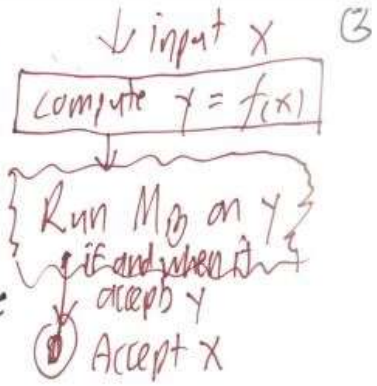 ↓ input x
(3
compute y = f(x)
Run M_B on y
if and when it
accepts y
Accept x